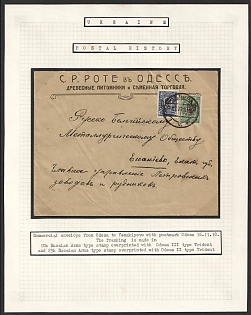 UKRAINE
POSTAL HISTORY
С.Р. РОТЕ въ ОДЕССѢ.
ДРЕВЕСНЫЕ ПИТОМНИКИ и СѢМЕННАЯ ТОРГОВЛЯ.
Русско Бельгійскому
Металлургическому Обществу
Енакіево, Екат. губ.
Главное управленіе Петровскихъ
заводовъ и рудниковъ
Commercial envelope from Odesa to Yenakiyevo with postmark Odesa
The franking is made in
10k Russian Arms type stamp overprinted with Odesa III type Trident
and 25k Russian Arms type stamp overprinted with Odesa II type Trident